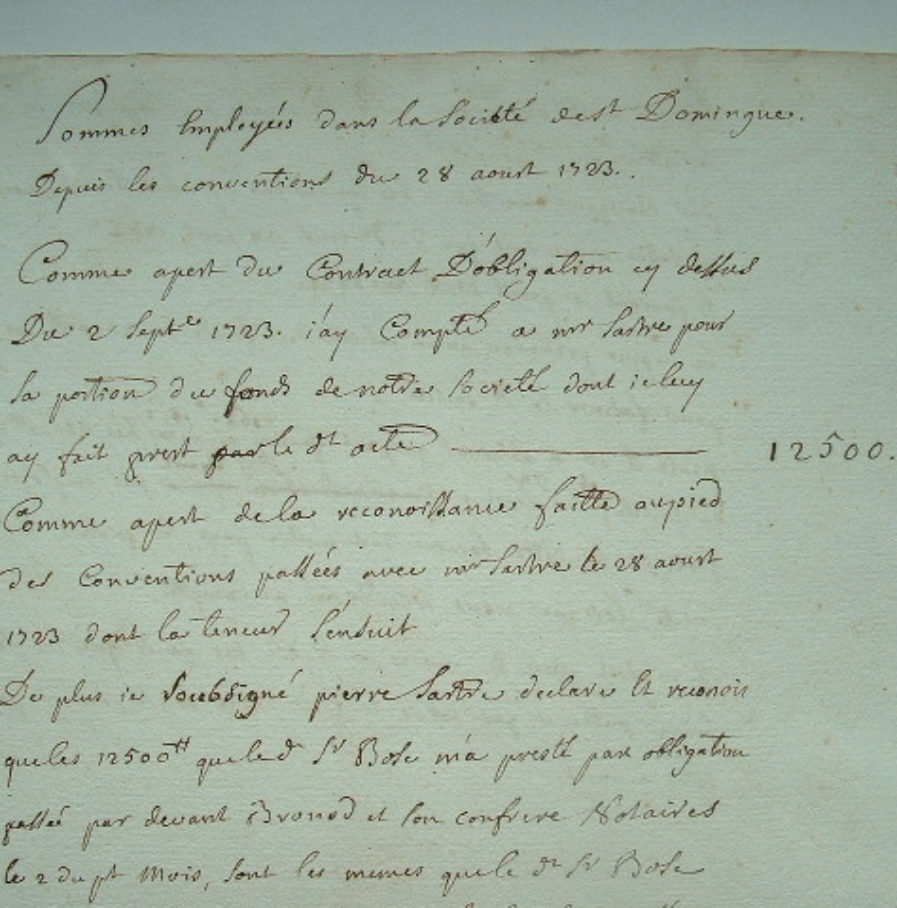 Sommes Employées dans la Societé de St Domingue.
Depuis les conventions du 28 aoust 1723.
Comme apert du Contract D'obligation cy dessus
Du 2 Septe 1723. i'ay Compté a mr Sartre pour
sa portion du fonds de notre societé dont ie luy
ay fait prest par le dt acte 12500.
Comme apert de la reconoissance faitte au pied
des Conventions passées avec mr Sartre le 28 aoust
1723 dont la teneur s'ensuit
De plus ie soubsigné pierre Sartre declare et reconois
que les 12500tt que le dt Sr Bosc m'a presté par obligation
passée par devant Bronod et son confrere Notaires
le 2 du pt Mois, sont les memes que le dt Sr Bosc